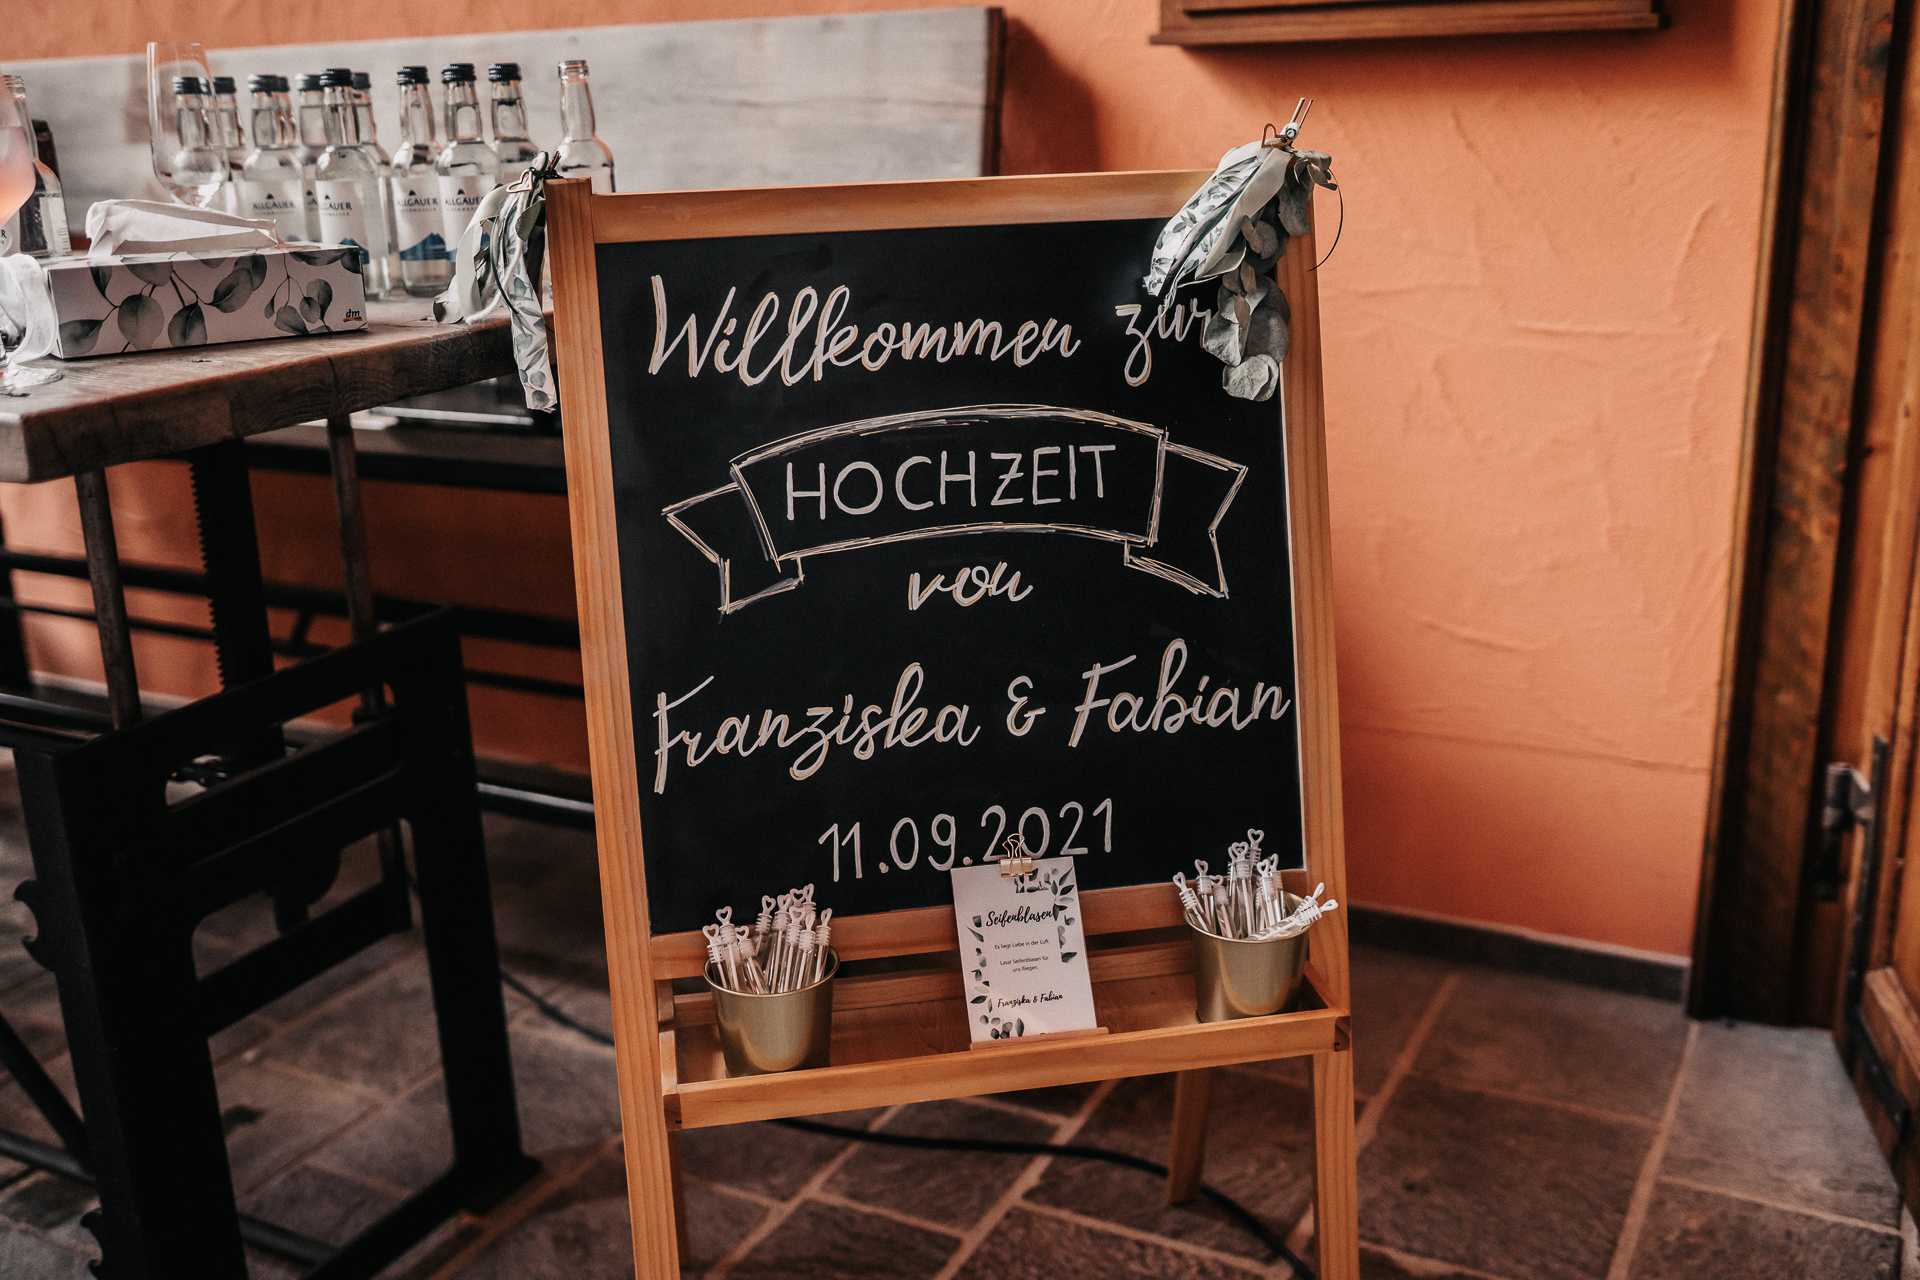 Willkommen zur
HOCHZEIT
von
Franziska & Fabian
11.09.2021
Seifenblasen
Es liegt Liebe in der Luft.
Lasst Seifenblasen für
uns fliegen.
Franziska & Fabian
ALLGÄUER
ALLGÄUER
ALLGÄUER
dm